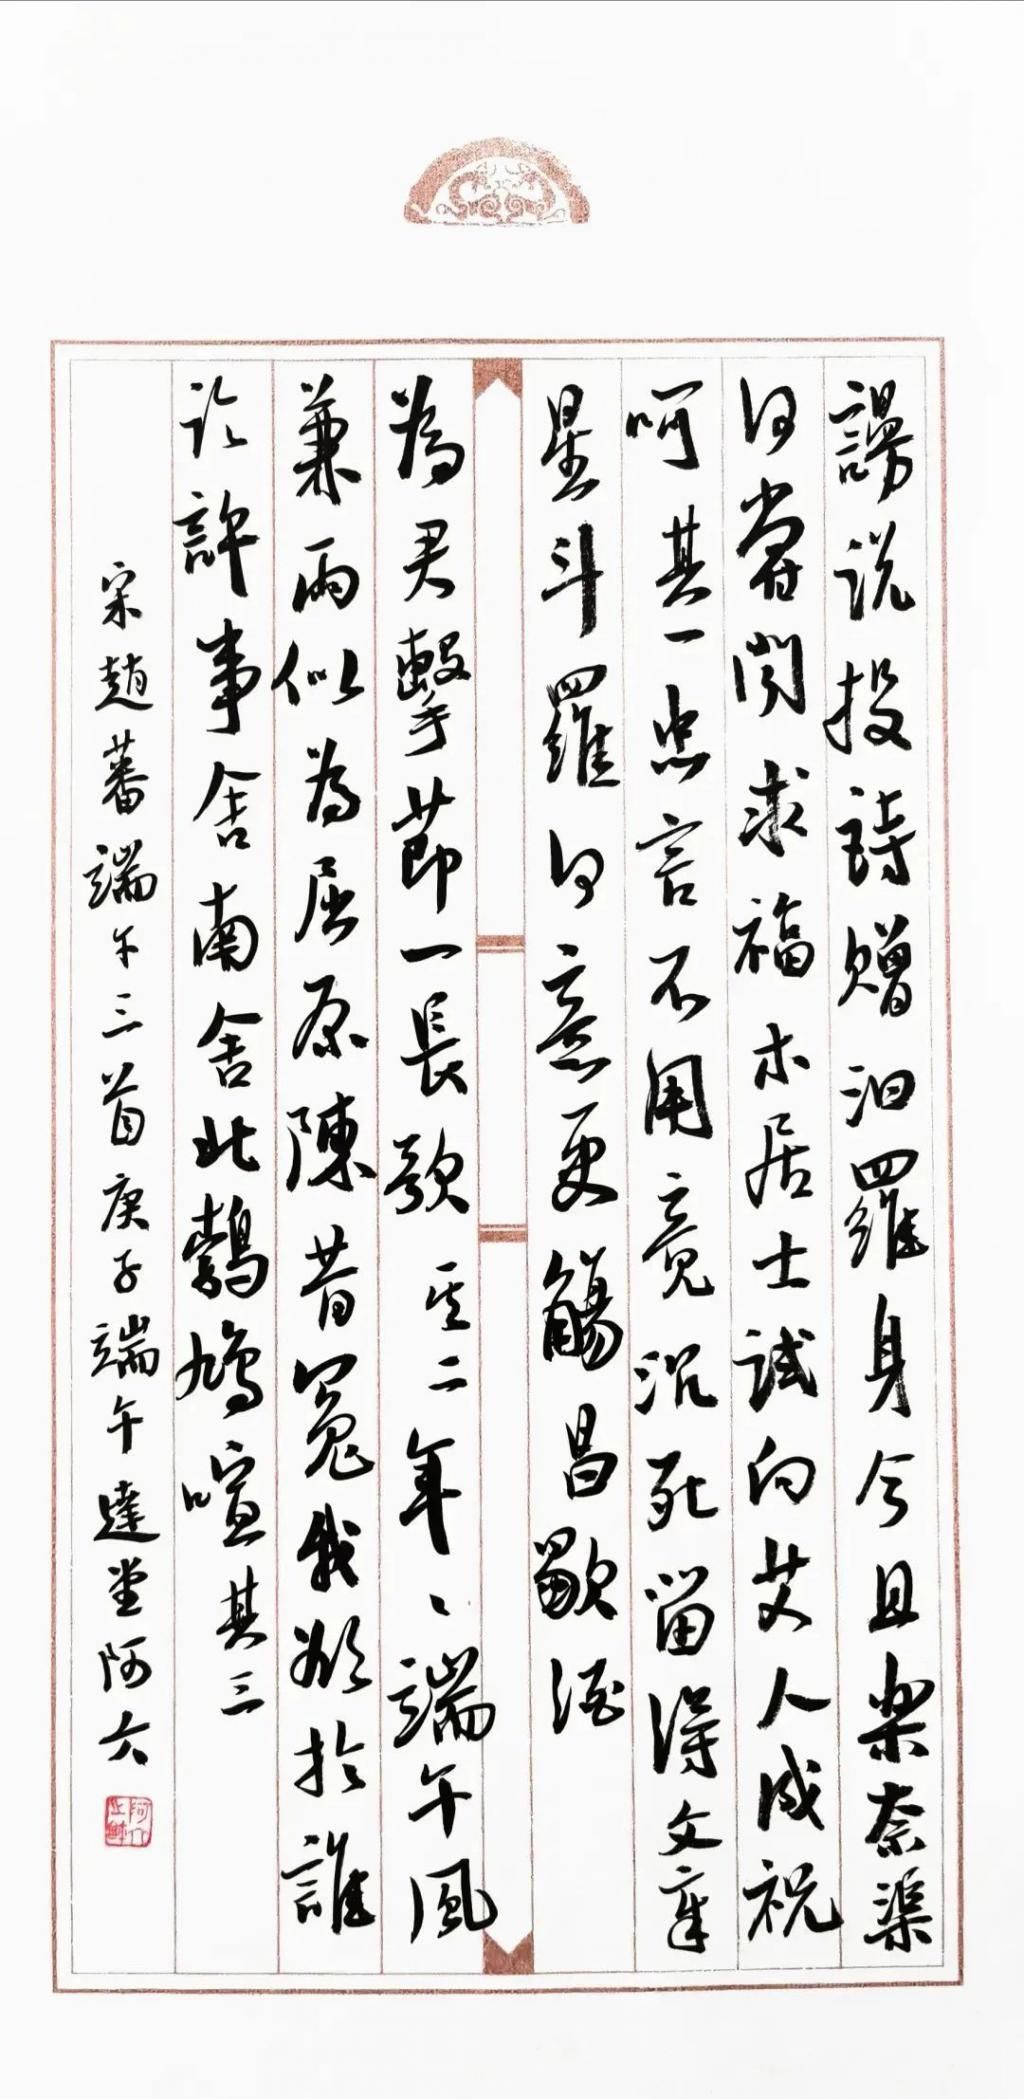 謾说投詩贈汨羅身今且樂奈渠
何嘗聞求福木居士試向艾人成祝
呵其一忠言不用竟沉死留得文章
星斗羅何意更觴昌歜酒
為君擊莭一長歌其二年〻端午風
兼雨似為屈原陳昔冤我欲於誰
论許事舍南舍北鵓鳩喧其三
宋趙蕃端午三首庚子端午達堂阿六